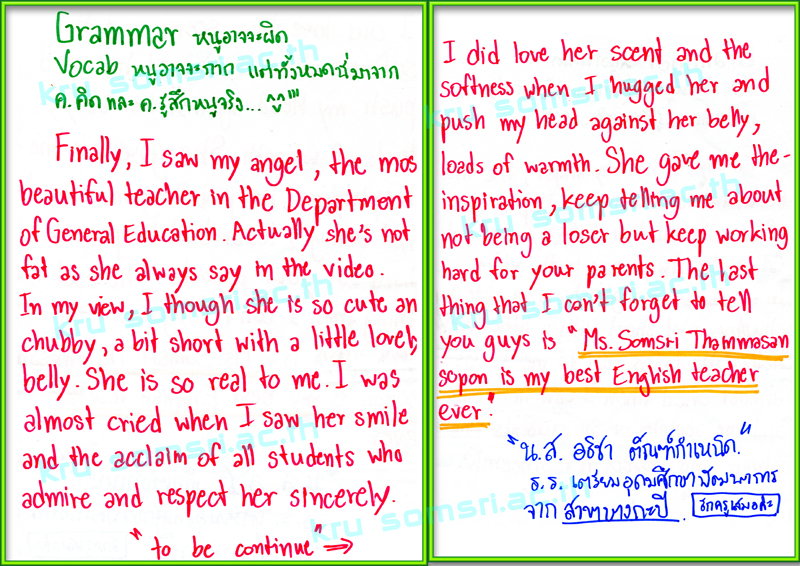 Grammar หนูอาจจะผิด
Vocab หนูอาจจะกาก แต่ทั้งหมดนี่มาจาก
ค.คิด และ ค.รู้สึกหนูจริง... ^^"'
Finally, I saw my angel, the mos
beautiful teacher in the Department
of General Education. Actually she's not
fat as she always say in the video.
In my view, I though she is so cute an
chubby, a bit short with a little lovely
belly. She is so real to me. I was
almost cried when I saw her smile
and the acclaim of all students who
admire and respect her sincerely.
"to be continue" →
I did love her scent and the
softness when I hugged her and
push my head against her belly,
loads of warmth. She gave me the
inspiration, keep telling me about
not being a loser but keep working
hard for your parents. The last
thing that I can't forget to tell
you guys is "Ms. Somsri Thammasan
sopon is my best English teacher
ever."
"น.ส. อธิชา ตัณฑ์กำเหนิด."
ร.ร. เตรียมอุดมศึกษาพัฒนาการ
จาก สาขาบางกะปิ. รักครูเสมอค่ะ
kru somsri.ac.th